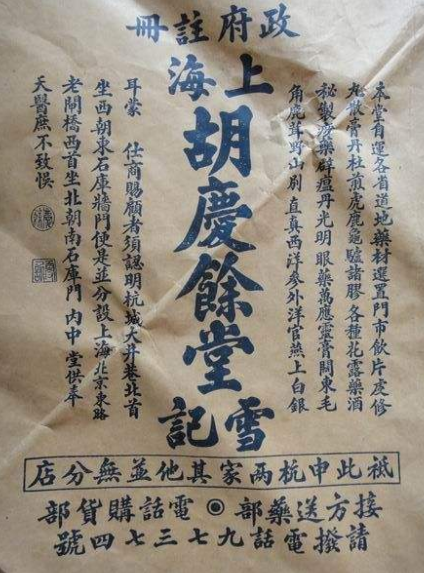 政府註冊
上海
胡慶餘堂
雪記
本堂自運各省道地藥材選置門市飲片虔修
丸散膏丹杜煎虎鹿龜驢諸膠各種花露藥酒
秘製痧藥辟瘟丹光明眼藥萬應靈膏關東毛
角鹿茸野山別直真西洋參外洋官燕上白銀
耳蒙 仕商賜顧者須認明杭城大井巷北首
坐西朝東石庫牆門便是並分設上海北京東路
老閘橋西首坐北朝南石庫門內中堂供奉
天醫庶不致悞
祇此申杭兩家其他並無分店
接方送藥部 ◉ 電話購貨部
請撥電話九七三七四號